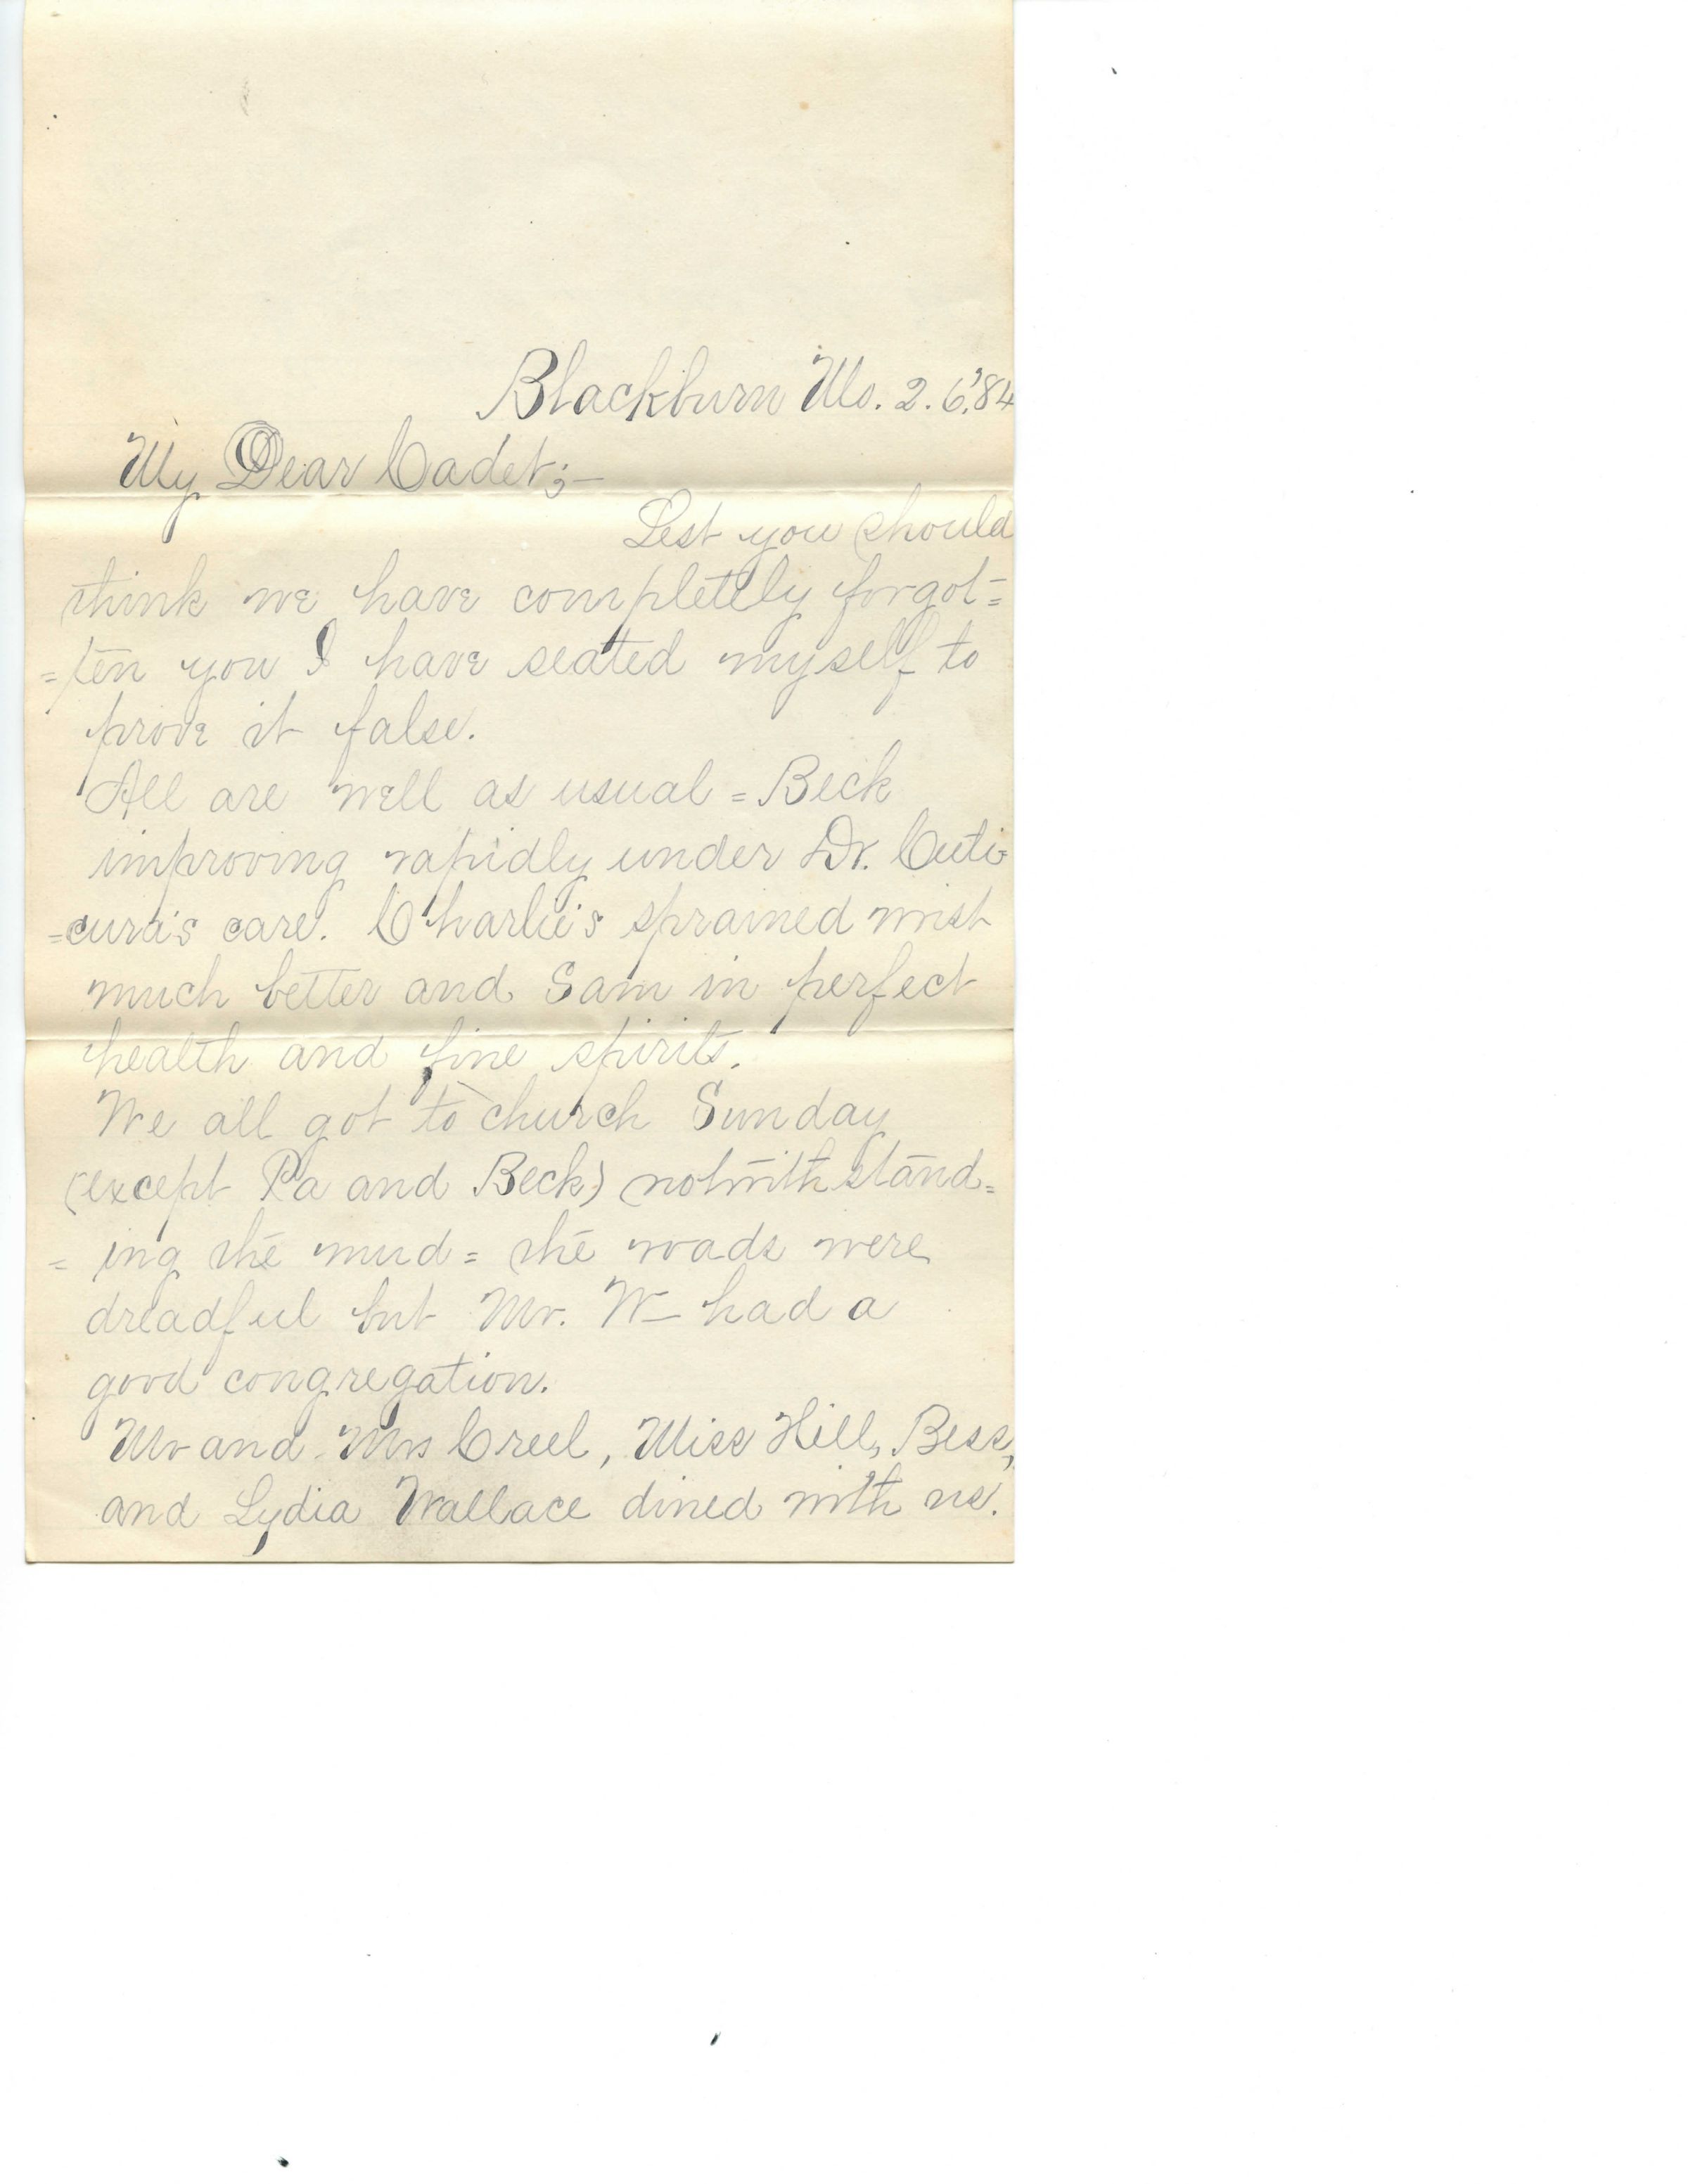 Blackburn Mo. 2. 6,'84
My Dear Cadet;—
Lest you should
think we have completely forgot=
=ten you I have seated myself to
prove it false.
All are well as usual = Beck
improving rapidly under Dr. Cuti=
=cura's care. Charlie's sprained wrist
much better and Sam in perfect
health and fine spirits.
We all got to church Sunday
(except Pa and Beck) notwithstand=
=ing the mud = the roads were
dreadful but Mr. W— had a
good congregation.
Mr and Mrs Creel, Miss Hill, Bess,
and Lydia Wallace dined with us.